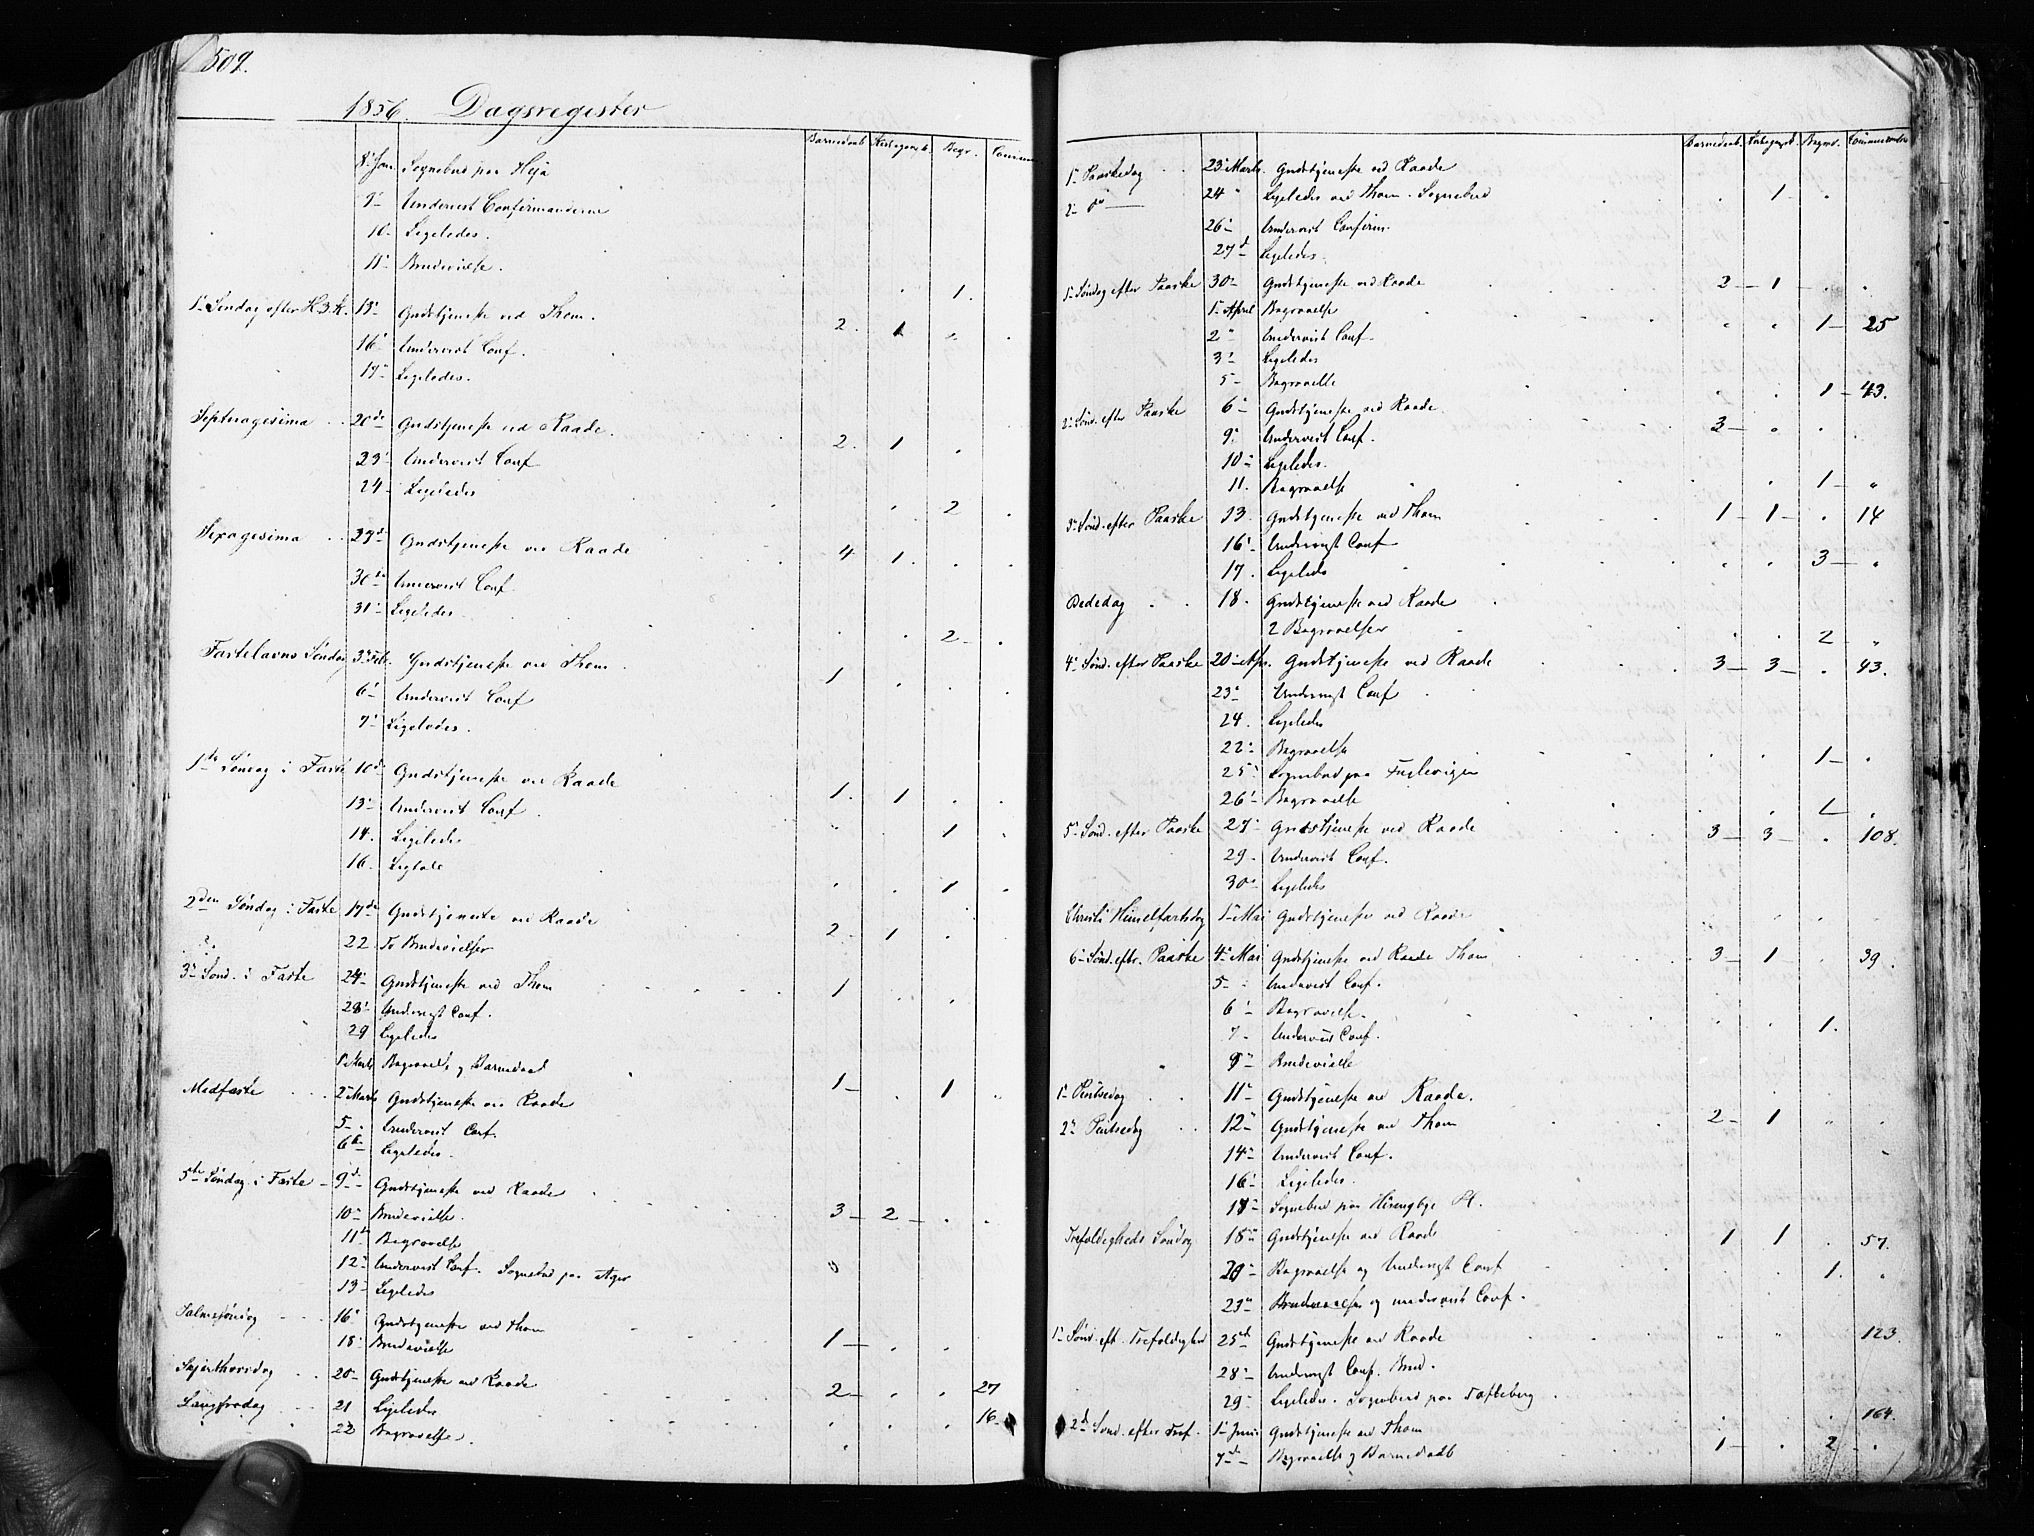 509.
1856. Dagsregister
Barnedaab Kirkegangsk. Begr. Comm
8' Jan. Sognebud paa Heja
9- Underviist Confirmanderne
10- Ligeledes.
11- Brudevielse.
1.
1' Søndag efter H.3.K. 13- Gudstjeneste ved Thom. 2. 1
16- Underviist Conf.
17- Ligeledes.
Septuagesima 20de Gudstjeneste ved Raade. 2. 1
23' Underviist Conf
24- Ligeledes
2
Sexagesima 27d Gudstjeneste ved Raade 4 1.
30te Underviist Conf.
31- Ligeledes.
2
Fastelavns Søndag 3' Feb. Gudstjeneste ved Thom 1
6- Underviist Conf
7- Ligeledes.
1ste Søndag i Faste 10d Gudstjeneste ved Raade 1. 1
13- Underviist Conf.
14. Ligeledes 1
16. Ligtale 1
2den Søndag i Faste 17de Gudstjeneste ved Raade 2. 1
22. To Brudevielser
3' Sønd. i Faste 24- Gudstjeneste ved Thom 1
28- Undervist Conf.
29 Ligeledes
1' Marts Begravelse og Barnedaab 1- 1
Midfaste 2' Marts Gudstjeneste ved Raade
5- Underviist Conf.
6te Ligeledes.
5te Søndag i Faste - 9d Gudstjeneste ved Raade 3- 2-
10- Brudevielse.
11te Begravelse
12- Underviist Conf. Sognebud paa Ager
13- Ligeledes
Palmesøndag 16- Gudstjeneste ved Thom 1-
18- Brudevielse
Skjærthorsdag 20- Gudstjeneste ved Raade 2- 27
Langfredag 21 Ligeledes 16-
22 Begravelse.
Barnedaab. Kirkegangsk. Begrav. Communicanter
1' Paaskedag 23' Marts. Gudstjeneste ved Raade
2' do 24 " Ligeledes ved Thom. Sognebud 1
26- Underviist Confirm.
27d Ligeledes.
1' Søndag efter Paaske 30- Gudstjeneste ved Raade 2- 1-
1' April Begravelse 1- 25
2 " Underviist Conf.
3' Ligeledes
5- Begravelse 1- 43.
2' Sønd. efter Paaske 6- Gudstjeneste ved Raade 3-
9- Underviist Conf.
10- Ligeledes.
11. Begravelse 1- "
3' Sønd. efter Paaske 13. Gudstjeneste ved Thom 1- 1- 14
16' Undervist Conf
17. Ligeledes 3- "
Bededag 18. Gudstjeneste ved Raade
2 Begravelser 2- "
4' Sønd. efter Paaske 20- Apr. Gudstjeneste ved Raade 3- 3- 43.
23' Undervist Conf
24. Ligeledes
22- Begravelse 1-
25' Sognebud paa Fuglevigen
26' Begravelse 1-
5' Sønd. efter Paaske 27- Gudstjeneste ved Raade 3- 3- 108.
29. Underviist Conf.
30- Ligeledes
Christi Himmelfartsdag 1' Mai Gudstjeneste ved Raade
6- Sønd. eftr. Paaske 4- Mai Gudstjeneste ved Raade Thom 3- 1- 39.
5- Underviist Conf.
6- Begravelse. 1.
7- Underviist Conf.
9- Brudevielse
1' Pintsedag 11- Gudstjeneste ved Raade.
2' Pintsedag 12- Gudstjeneste ved Thom 2- 1
14- Underviist Conf.
16- Ligeledes.
Sognebud paa
Trefoldigheds Søndag 18- Gudstjeneste ved Raade 1 1 57.
20- Begravelse og Undervist Conf 1. "
23- Brudevielse og underviist Conf.
1' Sønd. eft. Trefoldighed 25d Gudstjeneste ved Raade 123.
28- Undervist Conf.
29- Ligeledes. Sognebud paa
2d Sønd. efter Tref. 1' Juni Gudstjeneste ved Thom 164.
7d- Begravelse og Barnedaab 1- 2-